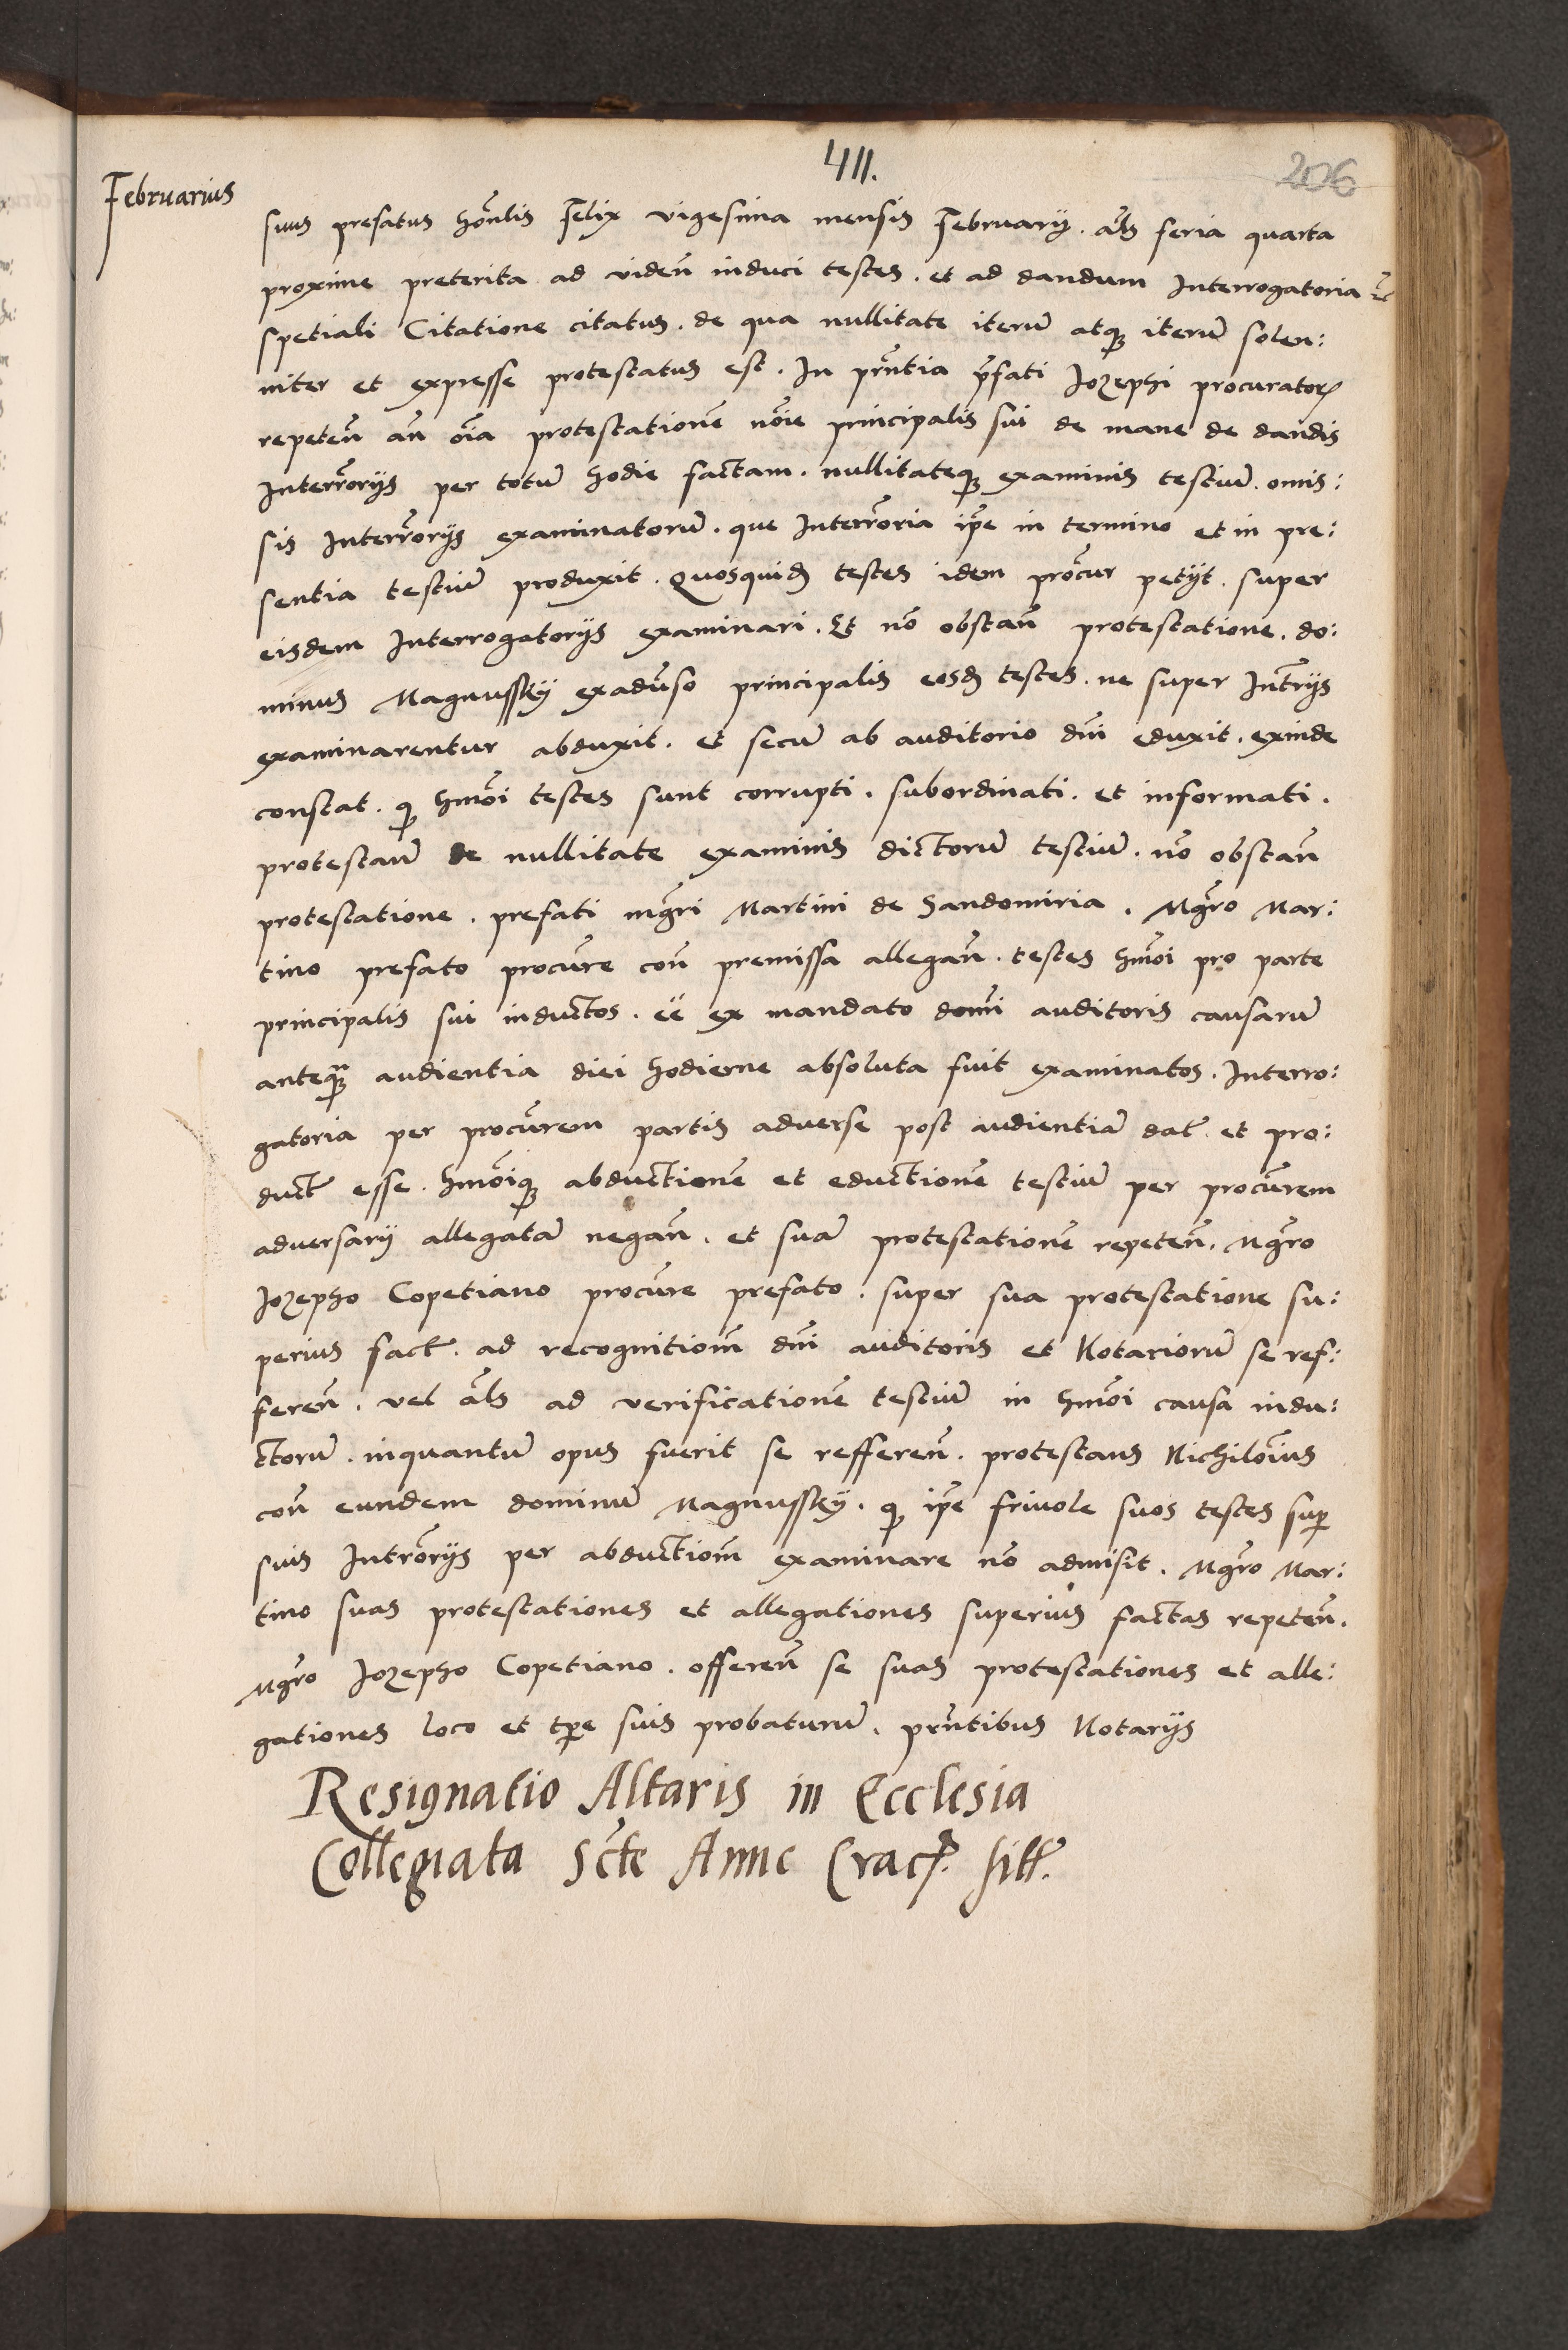 411.
206
Februarius
suus prefatus hõnlis Felix vigesima mensis Februarij. als̃ feria quarta
proxime preterita ad viden̄ induci testes. et ad dandum Interrogatoria
spetiali Citatione citatus. de qua nullitate iterũ atq̃ iterũ solen:
niter et expresse protestatus est. In pr̃ntia p̃fati Jozephi procurator
repeten̄ an̄ oĩa protestationẽ noĩe principalis sui de mane de dandis
Interr̃orijs per totũ hodie factam. nullitateq̃ examinis testiũ. omis:
sis Interr̃orijs examinatorũ. que Interr̃oria ip̃e in termino et in pre:
sentia testiũ produxit. Quosquid testes idem procur̃ petijt. super
eisdem Interrogatorijs examinari. Et nõ obstan̄ protestatione. do:
minus Magnussky exadũso principalis eosd testes. ne super Int̃rijs
examinarentur abduxit. et secũ ab auditorio dñi eduxit. exinde
constat. q hmõi testes sunt corrupti. subordinati. et informati.
protestan̄ de nullitate examinis dictorũ testiũ. nõ obstan̄
protestatione. prefati mg̃ri Martini de Sandomiria. Mg̃ro Mar:
tino prefato procũre con̄ premissa allegan̄. testes hmõi pro parte
principalis sui inductos. eẽ ex mandato domĩ auditoris causarũ
anteq̃ audientia diei hodierne absoluta fuit examinatos. Interro:
gatoria per procũrem partis adverse post audientiã dat̃. et pro:
duct̃ esse. hmõiq̃ abductionẽ et eductionẽ testiũ per procũrem
adversarij allegatã negan̄. et suã protestationẽ repeten̄. Mg̃ro
Jozepho Copetiano procũre prefato. super sua protestatione su:
perius fact̃. ad recognitiom̃ dñi auditoris et Notariorũ se ref:
feren̄. vel als̃ ad verificationẽ testiũ in hmõi causa indu:
ctorũ. inquantũ opus fuerit se refferen̄. protestans Nichilõius
con̄ eundem dominũ Magnussky. q ip̃e frivole suos testes sup
suis Intr̃orijs per abductiom̃ examinare nõ admisit. Mg̃ro Mar:
tino suas protestationes et allegationes superius factas repeten̄.
Mg̃ro Jozepho Copetiano. offeren̄ se suas protestationes et alle:
gationes loco et tp̃e suis probaturũ. pr̃ntibus Notarijs
Resignatio Altaris in Ecclesia
Collegiata Sctẽ Anne Crac̃. sitt̃.